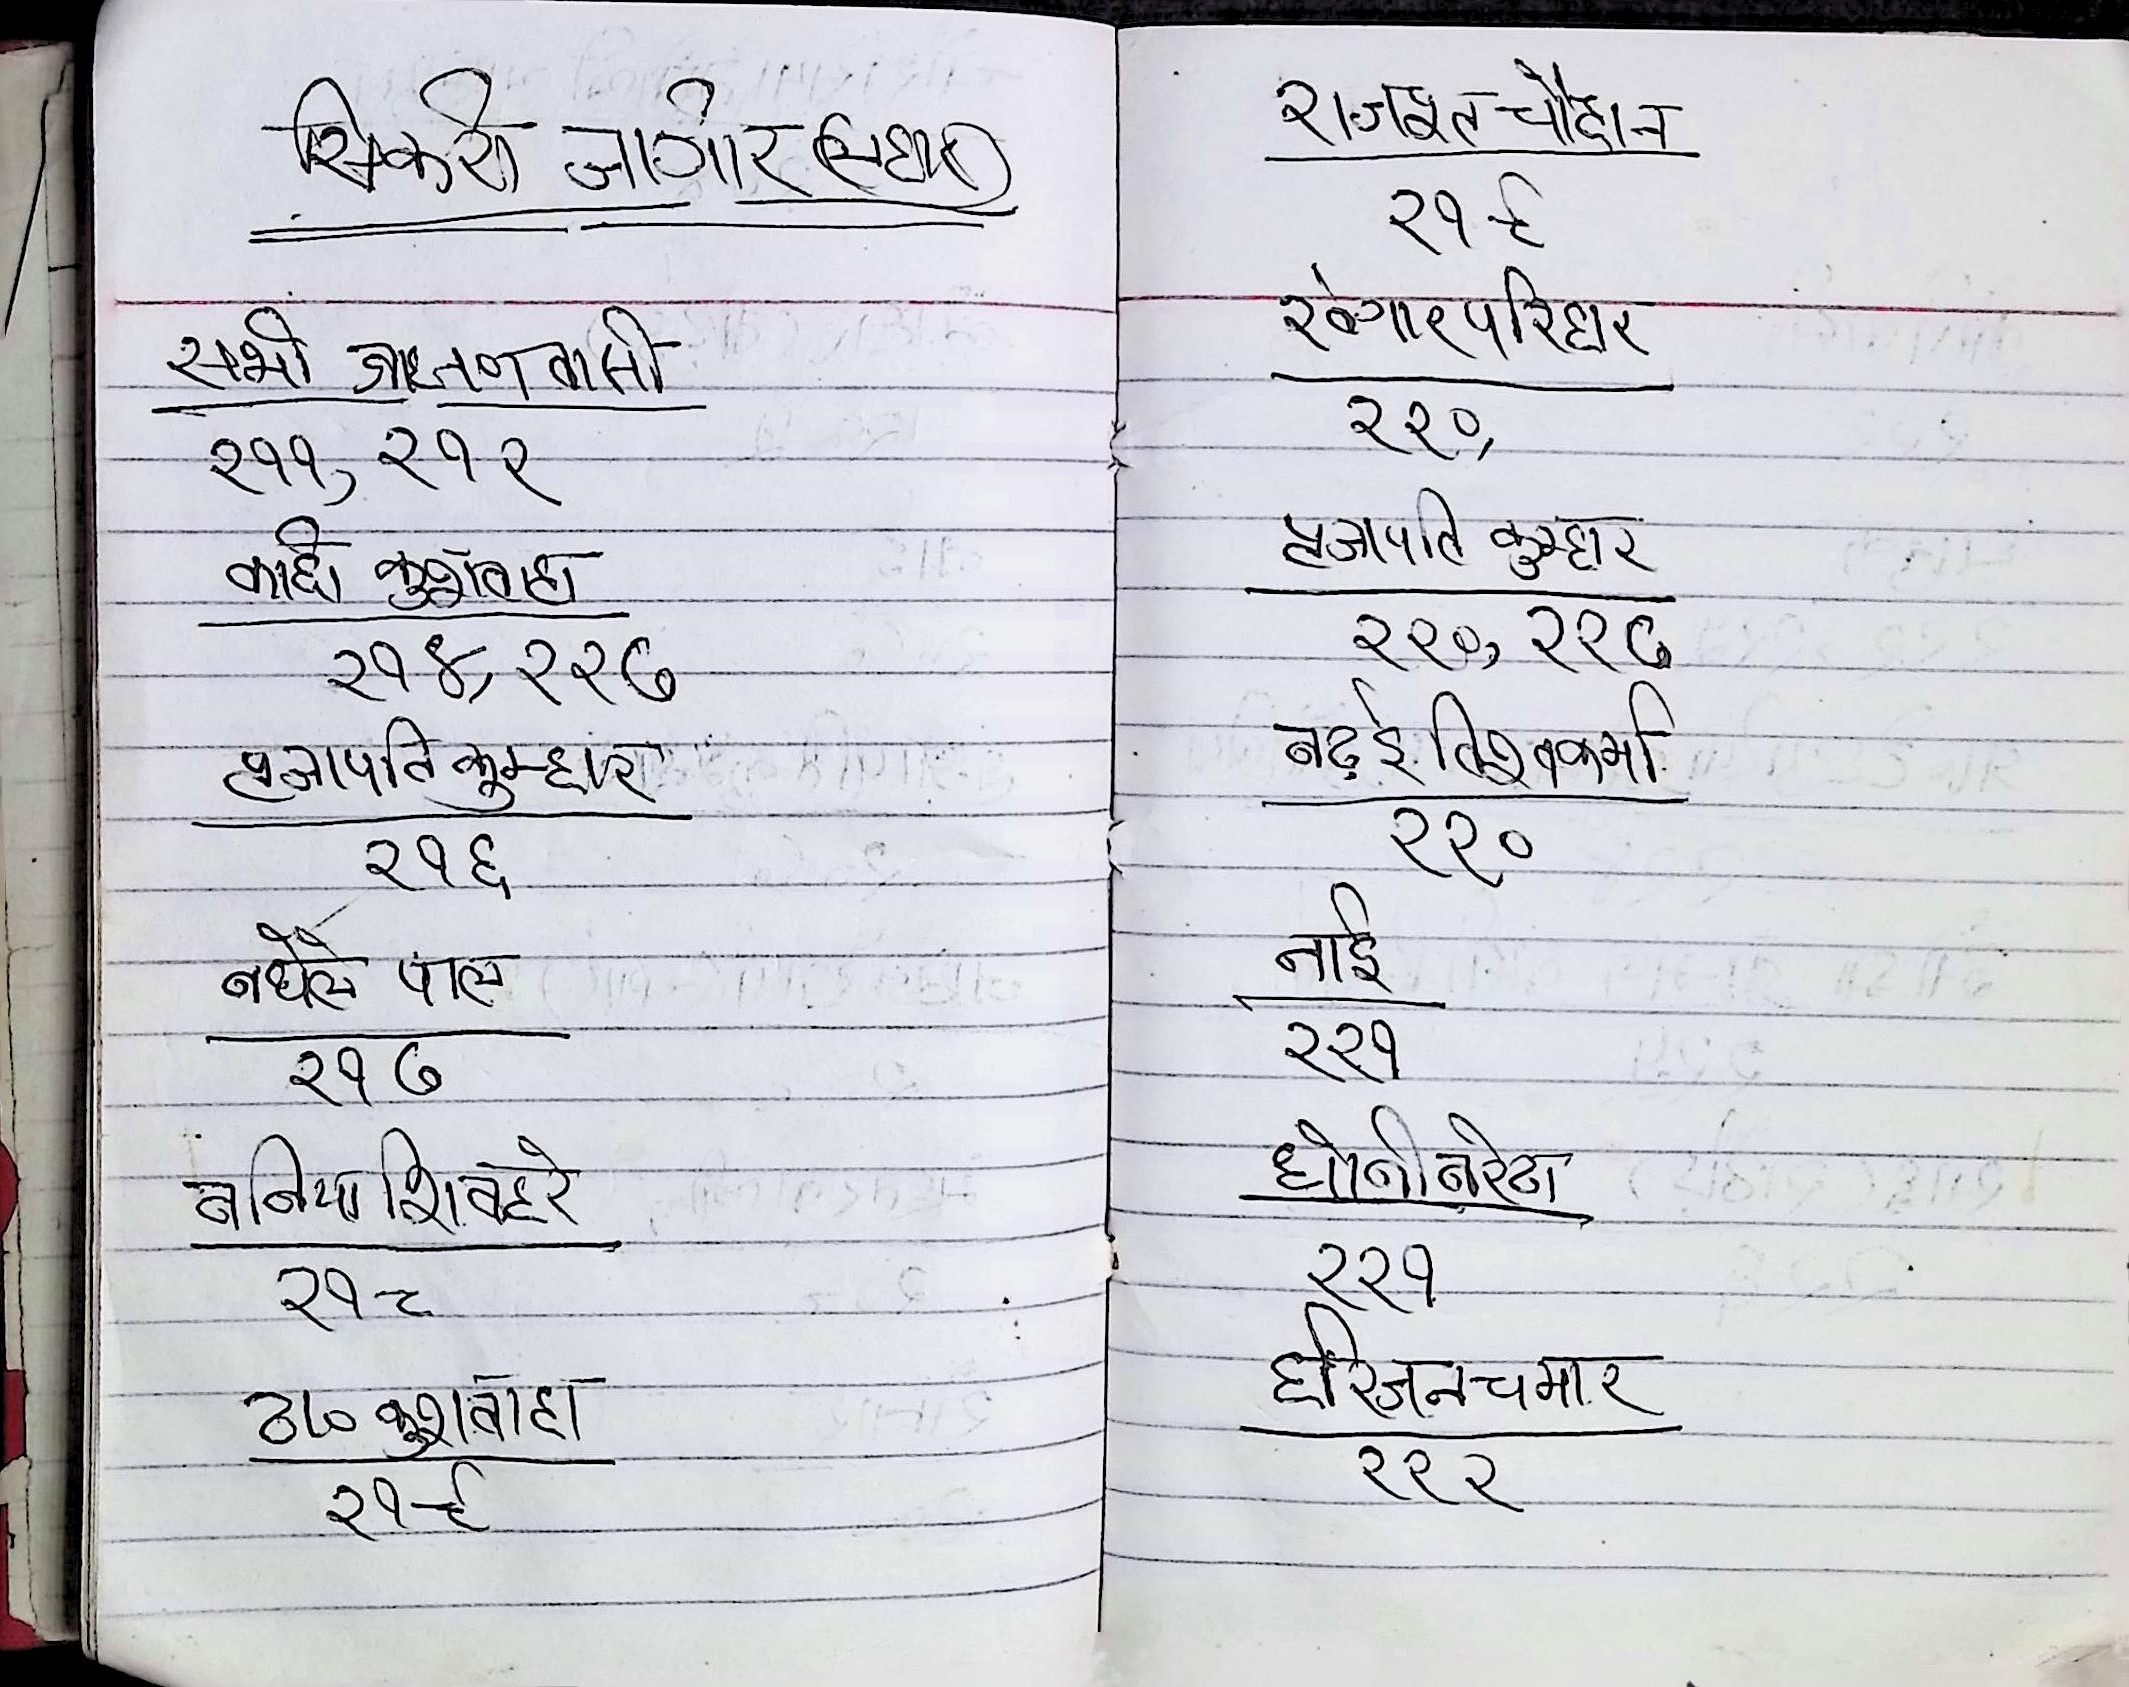 सिकरी जागीर
सभी ब्राह्मण वासी
२११, २१२
काछी कुशवाहा
२१४, २२७
प्रजापति कुम्हार
२१६
बघेले पाल
२१७
बनिया शिवहरे
२१८
ठा० कुशवाहा
२१९
राजपूत चौहान
२१९
खंगार परिहार
२२०,
प्रजापति कुम्हार
२२०, २२७
बढ़ई विश्वकर्मा
२२०
नाई
२२१
धोबी बरेठा
२२१
हरिजन चमार
२२२